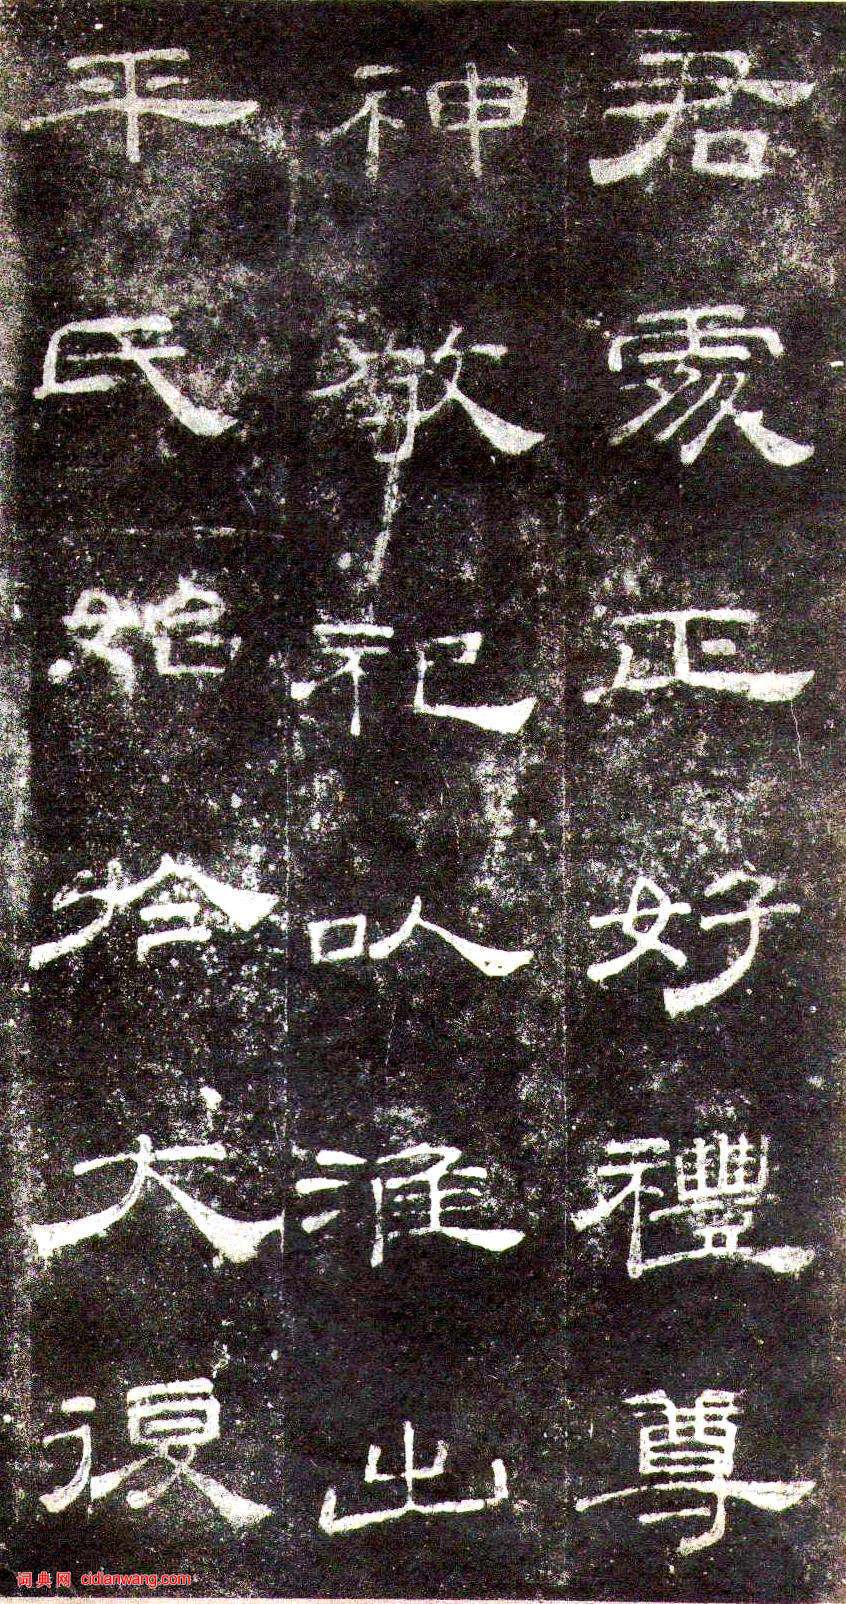 君處正好禮尊
神敬祀以淮出
平氏始於大復
词典网 cidianwang.com